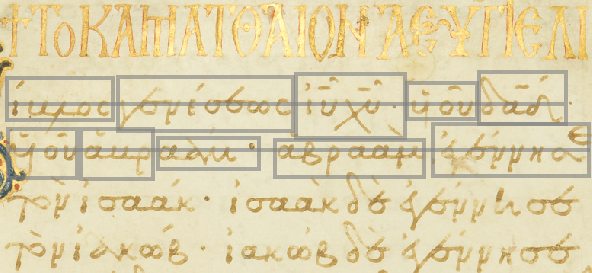 ΤΟ ΚΑΤΑ ΜΑΤΘΑΙΟΝ
ίβλος γενέσεως ἰῦ χῦ· ὑοῦ δαδ·
ὑοῦ ἀβραάμ· ἀβραὰμ ἐγέννησε
τὸν ἰσαάκ· ἰσαὰκ δὲ ἐγέννησε
τὸν ἰακώβ· ἰακὼβ δὲ ἐγέννησε